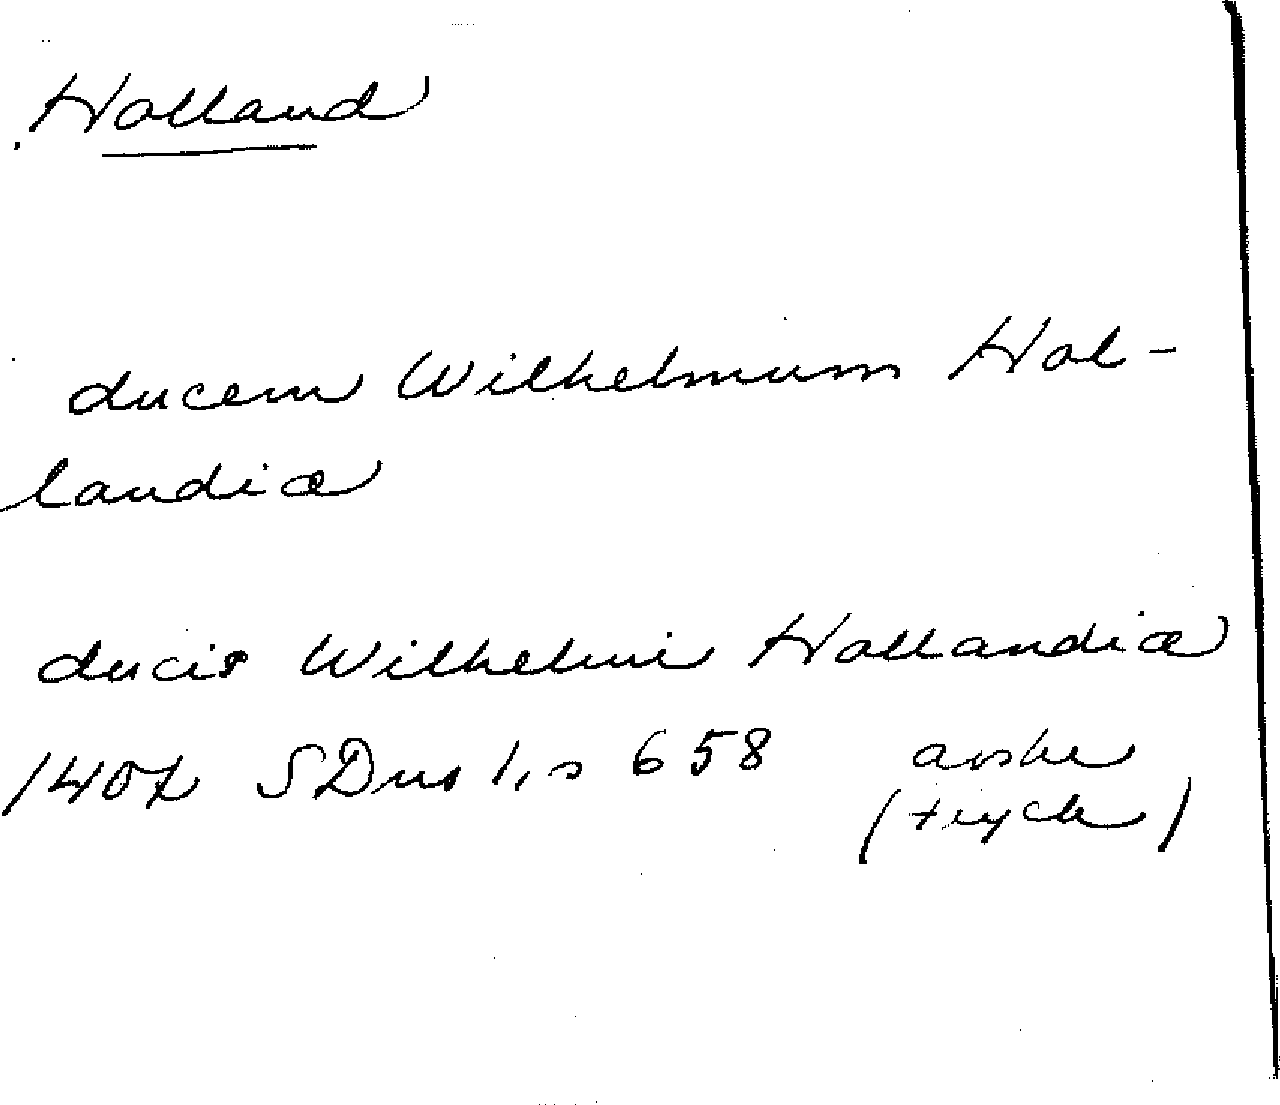 Holland
ducem Wilhelmum Hol-
landiæ
ducis Wilhelmi Hollandiæ
1407 SDns 1, s 658 avskr
(tryck)